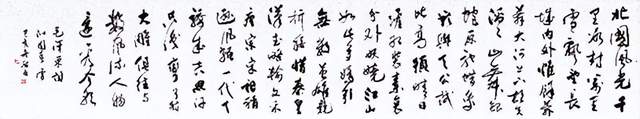 北國風光千
里冰封萬里
雪飄望長
城内外惟餘莽
莽大河上下頓失
滔滔山舞銀
蛇原馳蠟象
欲與天公試
比高須晴日
看紅裝素裹
分外妖嬈江山
如此多嬌引
無數英雄競
折腰惜秦皇
漢武略輸文采
唐宗宋祖稍
遜風騷一代天
驕成吉思汗
只識彎弓射
大雕俱往矣
數風流人物
還看今朝
毛澤東詞
沁園春雪